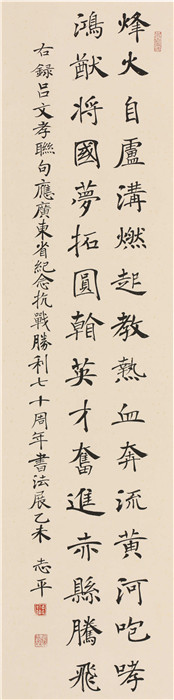 烽火自盧溝燃起教熱血奔流黃河咆哮
鴻猷将國夢拓圓翰英才奮進赤縣騰飛
右録呂文孝聯句應廣東省紀念抗戰勝利七十周年書法展乙未 志平